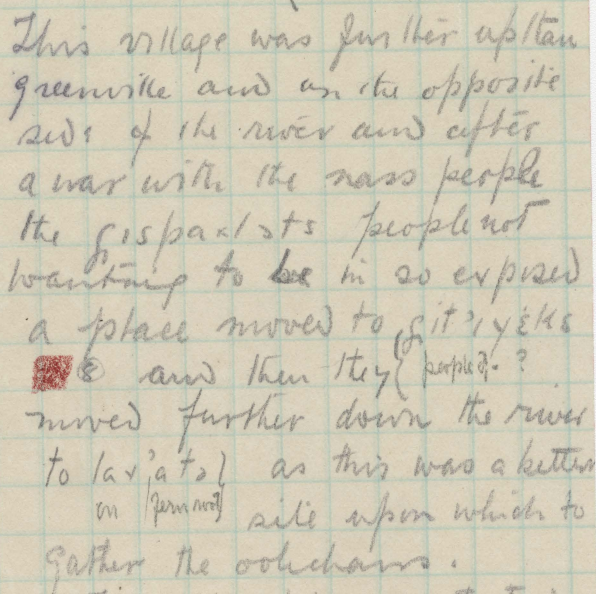 This village was further up than
greenville and on the opposite
side of the river and after
a war with the nass people
the gispaxlɔts people not
wanting to be in so exposed
a place moved to git'iyɛks
8 and then they { people of - ?
moved further down the river
to lax'atɔ } as this was a better
on fern root } site upon which to
gather the oolichans.